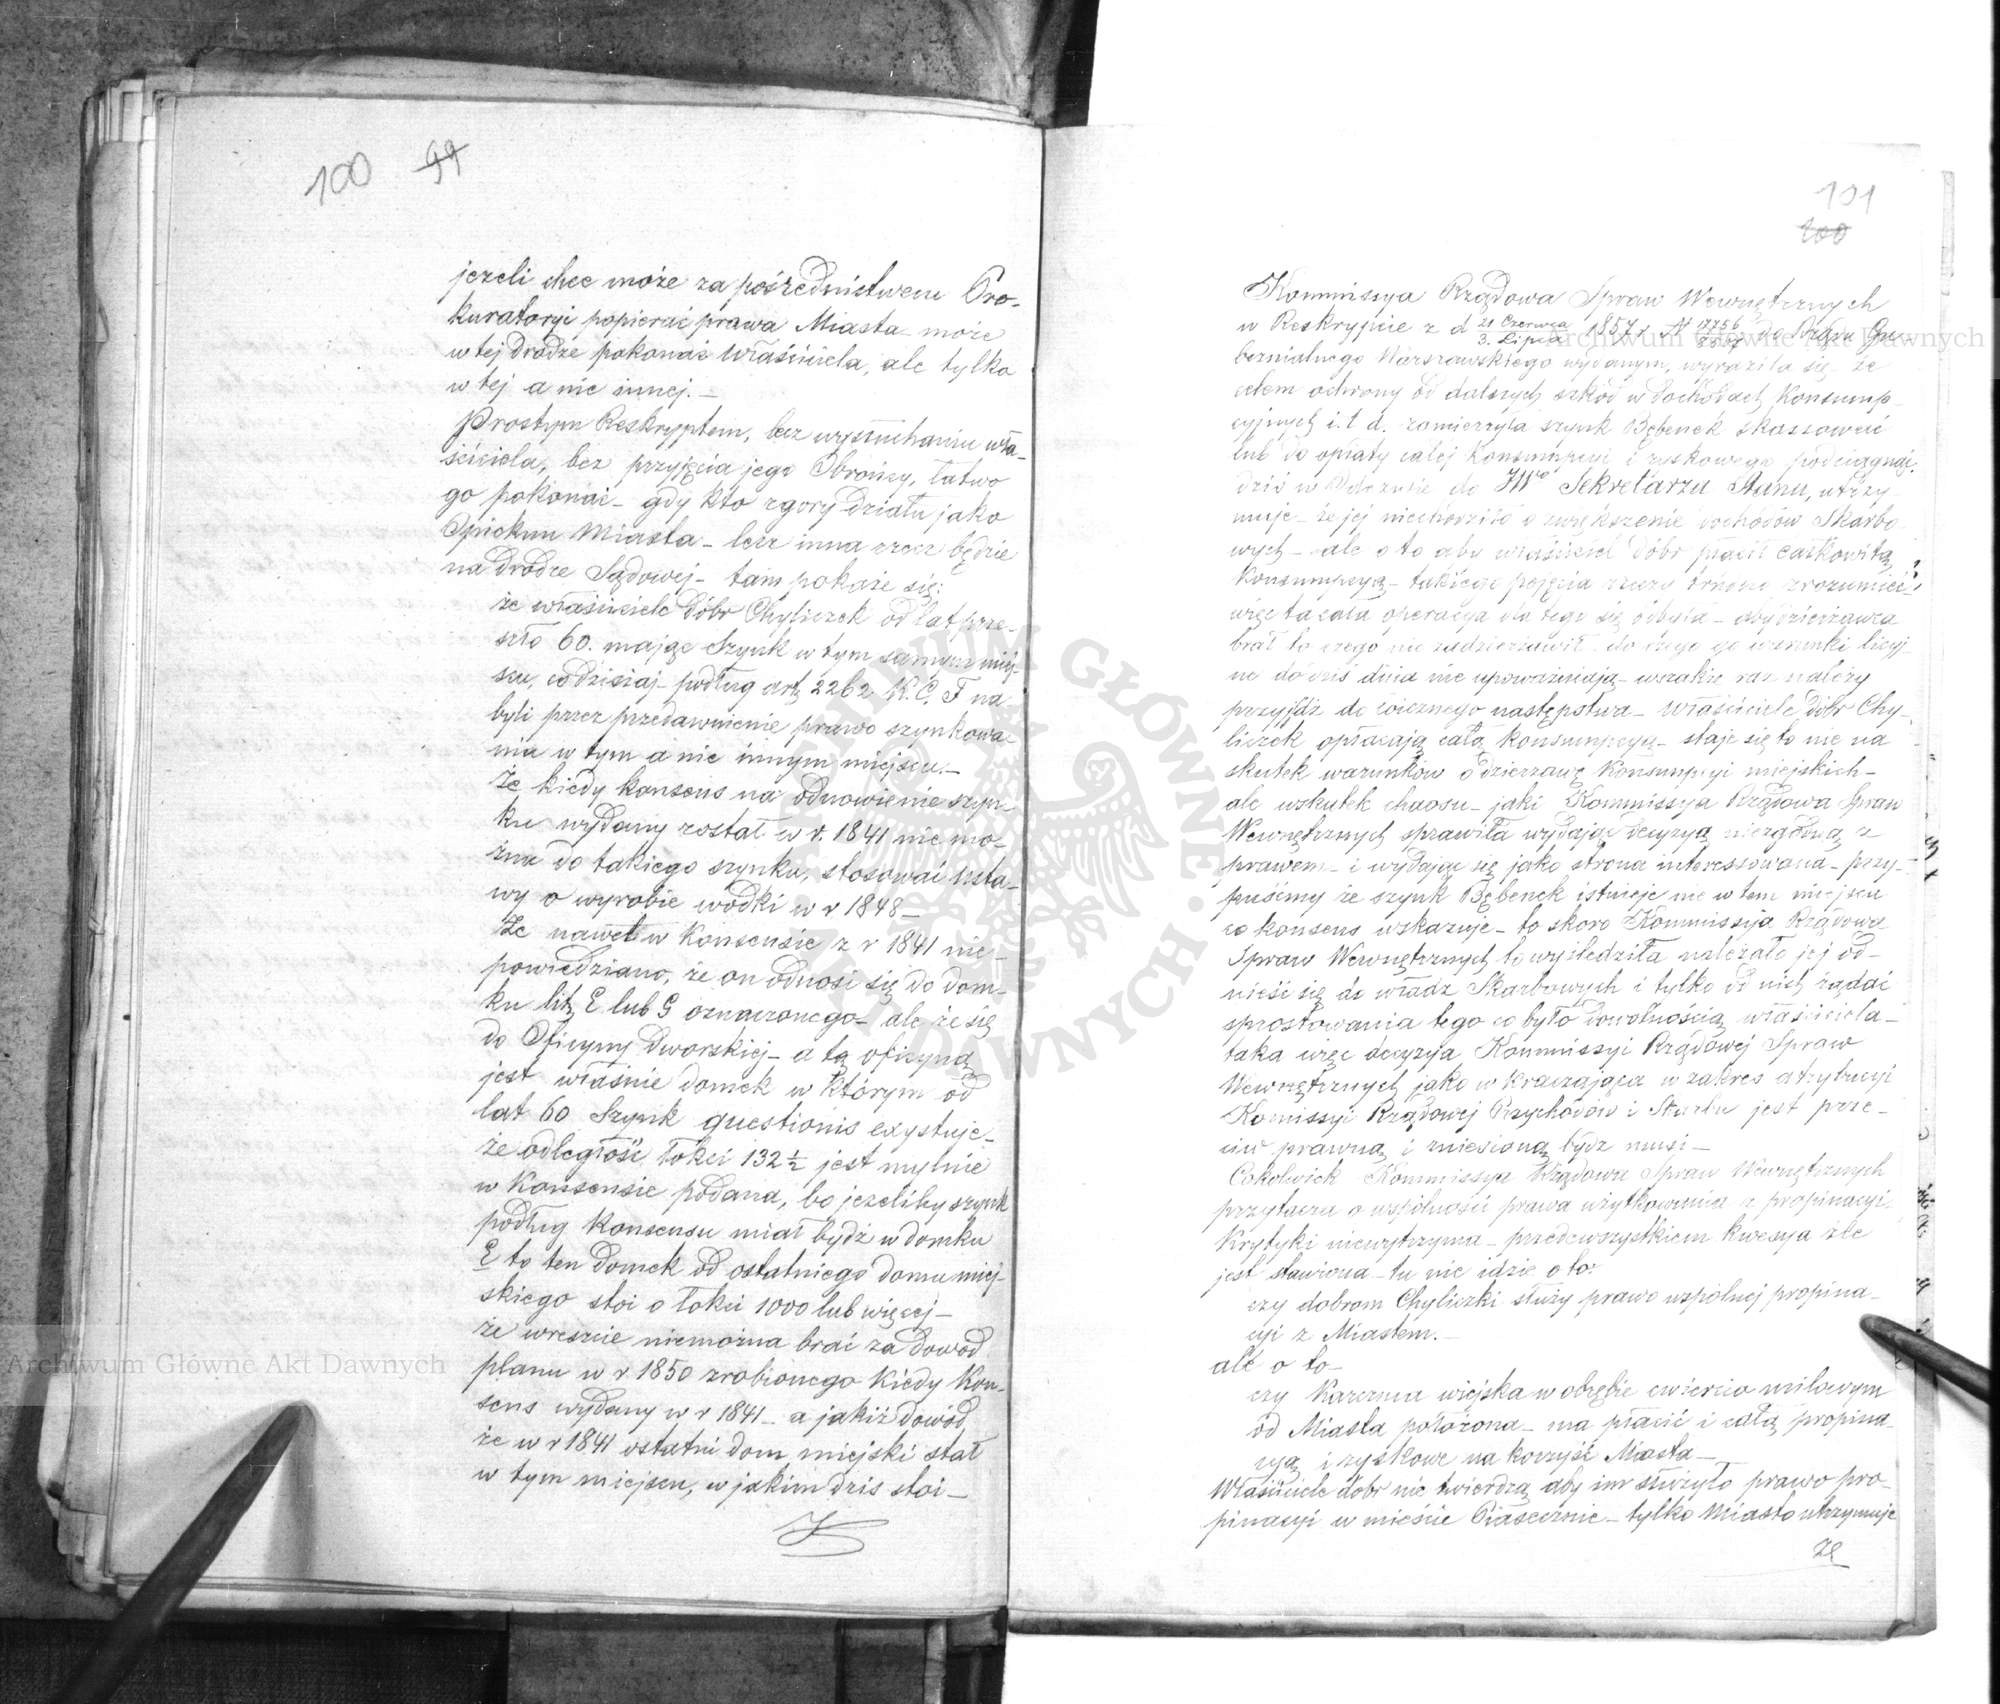 100 99
jeżeli chce może za pośrednictwem Pro-
kuratoryi popierać prawa Miasta može
w tej drodze pokonać właściciela, ale tylko
w tej a nie innej.—
Prostym Reskryptem, bez wysłuchania wła-
ściciela, bez przyjęcia jego Obrońcy, łatwo
go pokonać – gdy kto z góry działa jako
Opiekun Miasta – lecz inna rzecz będzie
na drodze Sądowej – tam pokaże się:
że właściciele Dóbr Chyliczek od lat prze-
szło 60. mając Szynk w tym samym miej-
scu, co dzisiaj – podług art. 2262 K. C. F na-
byli przez przedawnienie prawo szynkowa-
nia w tym a nie innym miejscu.—
Że kiedy konsens na odnowienie szyn-
ku wydany został w r. 1841 nie mo-
żna do takiego szynku, stosować Usta-
wy o wyrobie wódki w r 1848—
Że nawet w Konsensie z r 1841 nie-
powiedziano, że on odnosi się do dom-
ku lit. E lub G oznaczonego – ale że się
do Oficyny Dworskiej – a tą oficyną
jest właśnie domek w którym od
lat 60 Szynk questionis exystuje –
że odległość łokci 132 ½ jest mylnie
w Konsensie podana, bo jeżeliby szynk
podług Konsensu miał bydź w domku
E to ten Domek od ostatniego domu miej-
skiego stoi o łokci 1000 lub więcej –
że wreszcie niemożna brać za dowód
planu w r 1850 zrobionego kiedy Kon-
sens wydany w r 1841 – a jakiż dowód
że w r 1841 ostatni dom miejski stał
w tym miejscu, w jakim dziś stoi –
101
100
Kommissya Rządowa Spraw Wewnętrznych
w Reskrypcie z d 21 Czerwca / 3. Lipca 1857 r. N 17756 do Rządu Gu-
bernialnego Warszawskiego wydanym, wyraziła się – że
celem ochrony od dalszych szkód w dochodach Konsump-
cyjnych i. t d. zamierzyła szynk Bębenek skassować
lub do opłaty całej Konsumpcyi i zyskowego podciągnąć.
dziś w Odezwie do JWo Sekretarza Stanu, utrzy-
muje – że jej niechodziło o zwiększenie dochodów Skarbo-
wych – ale o to aby właściciel dóbr płacił całkowitą
Konsumpcyą – takiego pojęcia rzeczy trudno zrozumieć
więc ta cała operacya dla tego się odbyła – aby dzierżawca
brał to czego nie zadzierżawił – do czego go warunki licyj-
ne do dziś dnia nie upoważniają – wszakże raz należy
przyjść do tecznego następstwa – właściciele dóbr Chy-
liczek opłacają całą konsumpcyą – staje się to nie na
skutek warunków o dzierżawę Konsumpcyi miejskich –
ale wskutek chaosu – jaki Kommissya Rządowa Spraw
Wewnętrznych sprawiła wydając decyzyą niezgodną z
prawem – i wydając się jako strona interessowana – przy-
puśćmy że szynk Bębenek istnieje nie w tem miejscu
co konsens wskazuje – to skoro Kommissya Rządowa
Spraw Wewnętrznych to wyśledziła należało jej od-
nieść się do władz Skarbowych i tylko od nich żądać
sprostowania tego co było dowolnością właściciela –
taka więc decyzya Kommissyi Rządowej Spraw
Wewnętrznych jako wkraczająca w zakres atrybucyi
Komissyi Rządowej Przychodów i Skarbu jest prze-
ciw prawną i zniesioną bydź musi –
Cokolwiek Kommissya Rządowa Spraw Wewnętrznych
przytacza o wspólności prawa użytkowania z propinacyi.
Krytyki niewytrzyma – przedewszystkiem kwestya źle
jest stawiona – tu nie idzie o to:
czy dobrom Chyliczki służy prawo wspólnej propina-
cyi z Miastem.—
ale o to –
czy Karczma wiejska w obrębie ćwierćio milowym
od Miasta położona – ma płacić i całą propina-
cyą i zyskowe na korzyść Miasta –
Właściciele dóbr nie twierdzą aby im służyło prawo pro-
pinacyi w mieście Piasecznie – tylko Miasto utrzymuje
że
Archiwum Główne Akt Dawnych
Archiwum Główne Akt Dawnych
ARCHIWUM GŁÓWNE AKT DAWNYCH